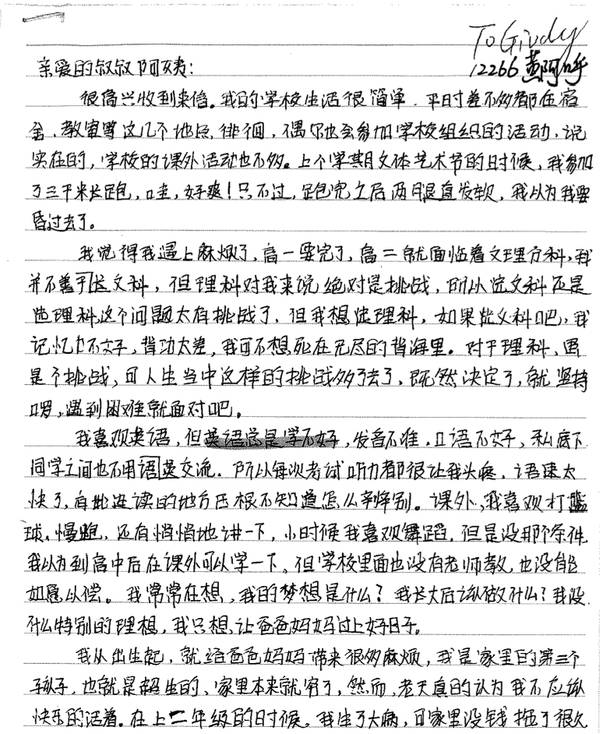 To Givdy
12266 黄阿呼
亲爱的叔叔阿姨:
很高兴收到来信。我的学校生活很简单,平时差不多都在宿
舍,教室等这几个地点徘徊,偶尔也会参加学校组织的活动,说
实在的,学校的课外活动也不多。上个学期文体艺术节的时候,我参加
了三千米长跑,哇,好爽!只不过,跑完之后两腿直发软,我以为我要
昏过去了。
我觉得我遇上麻烦了,高一要完了,高二就面临着文理分科,我
并不善于长文科,但理科对我来说绝对是挑战,所以选文科还是
选理科这个问题太有挑战了,但我想选理科,如果选文科吧,我
记忆力不好,背功太差,我可不想死在无尽的背海里。对于理科,虽
是个挑战,可人生当中这样的挑战多了去了,既然决定了,就坚持
啰,遇到困难就面对吧。
我喜欢英语,但英语总是学不好,发音不准,口语不好,私底下
同学之间也不用语英交流。所以每次考试听力都很让我头疼,语速太
快了,有些连读的地方压根不知道怎么辨别。课外,我喜欢打篮
球,慢跑,还有悄悄地讲一下,小时候我喜欢舞蹈,但是没那个条件
我以为到高中后在课外可以学一下,但学校里面也没有老师教,也没能
如愿以偿。我常常在想,我的梦想是什么?我长大后该做什么?我没
什么特别的理想,我只想让爸爸妈妈过上好日子。
我从出生起,就给爸爸妈妈带来很多麻烦,我是家里的第三个
孩子,也就是超生的,家里本来就穷了,然而,老天真的认为我不应该
快乐的活着。在上二年级的时候,我生了大病,可家里没钱拖了很久